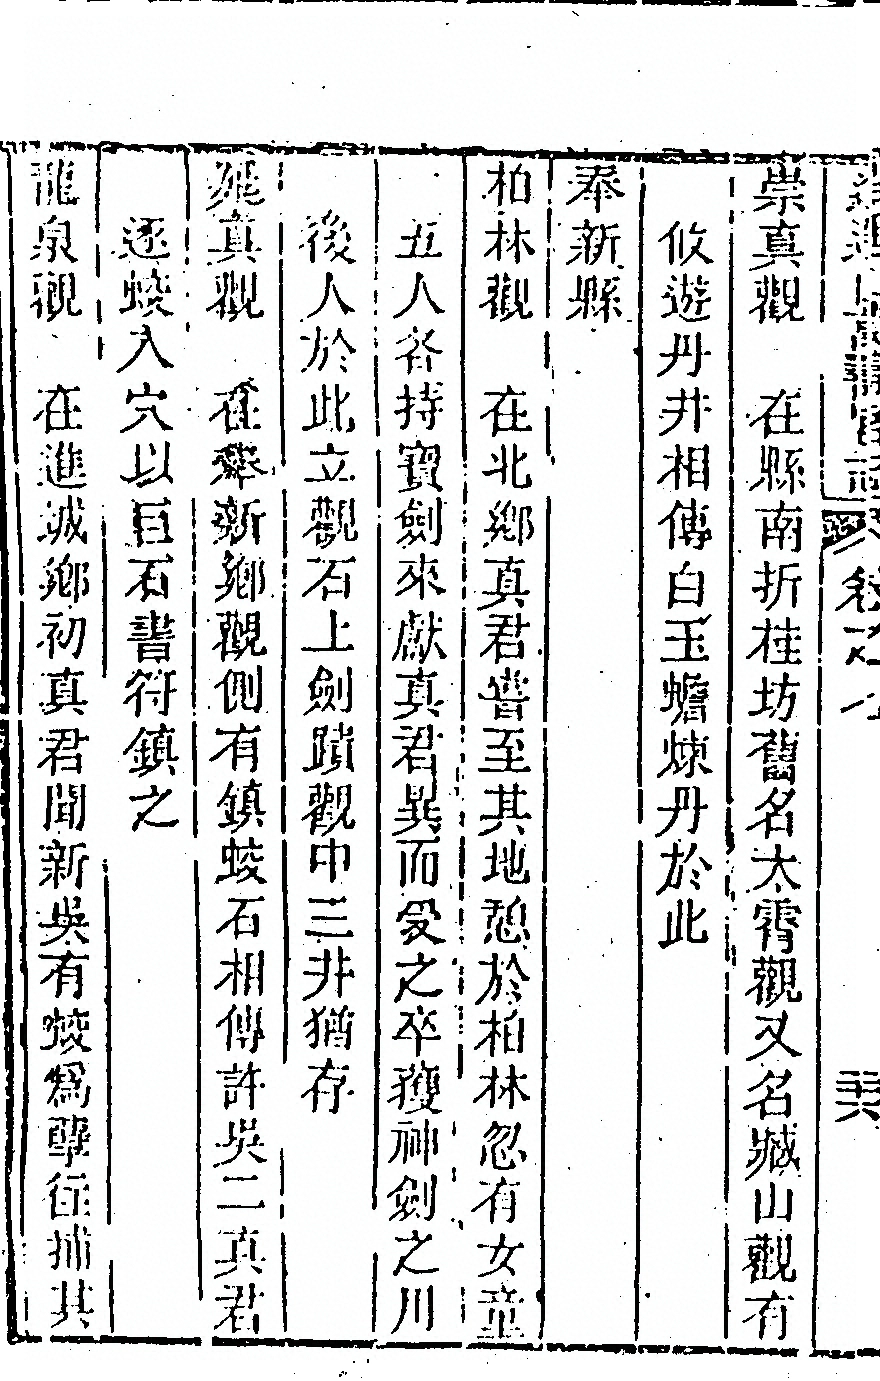 崇真觀　在縣南折桂坊舊名太霄觀又名藏山觀有
攸遊丹井相傳白玉蟾煉丹於此
奉新縣
柏林觀　在北鄉真君嘗至其地憩於柏林忽有女童
五人各持寶劍來獻真君異而受之卒獲神劍之用
後人於此立觀石上劍蹟觀中三井猶存
真觀　在奉新鄉觀側有鎮蛟石相傳許吳二真君
逐蛟入穴以巨石書符鎮之
龍泉觀　在進城鄉初真君聞新吳有蛟為孽往捕其